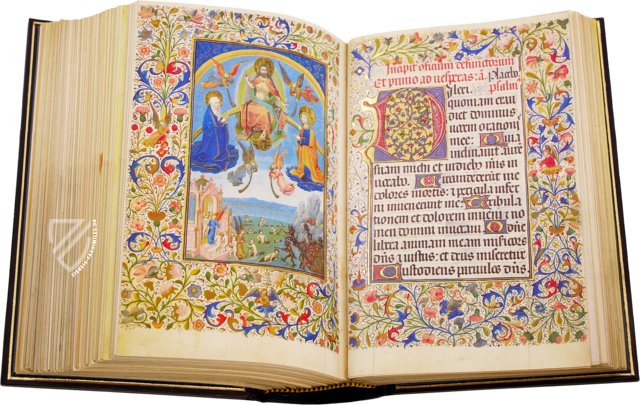 Incipit officium defunctorum
Et primo ad vesperas: a Placebo
psalm
Dilexi
quoniam exau
diet dominus
vocem orationis
mee: Quia
inclinavit aure
suam michi et in diebus meis in
vocabo. Circumdederunt me
dolores mortis: et pericula infer
ni invenerunt me. Tribula
tionem et dolorem inveni et no
men domini invocavi. O domine
libera animam meam misericors
dominus et iustus: et deus noster miseretur
Custodiens parvulos dominus
ZIEREIS FAKSIMILES.DE